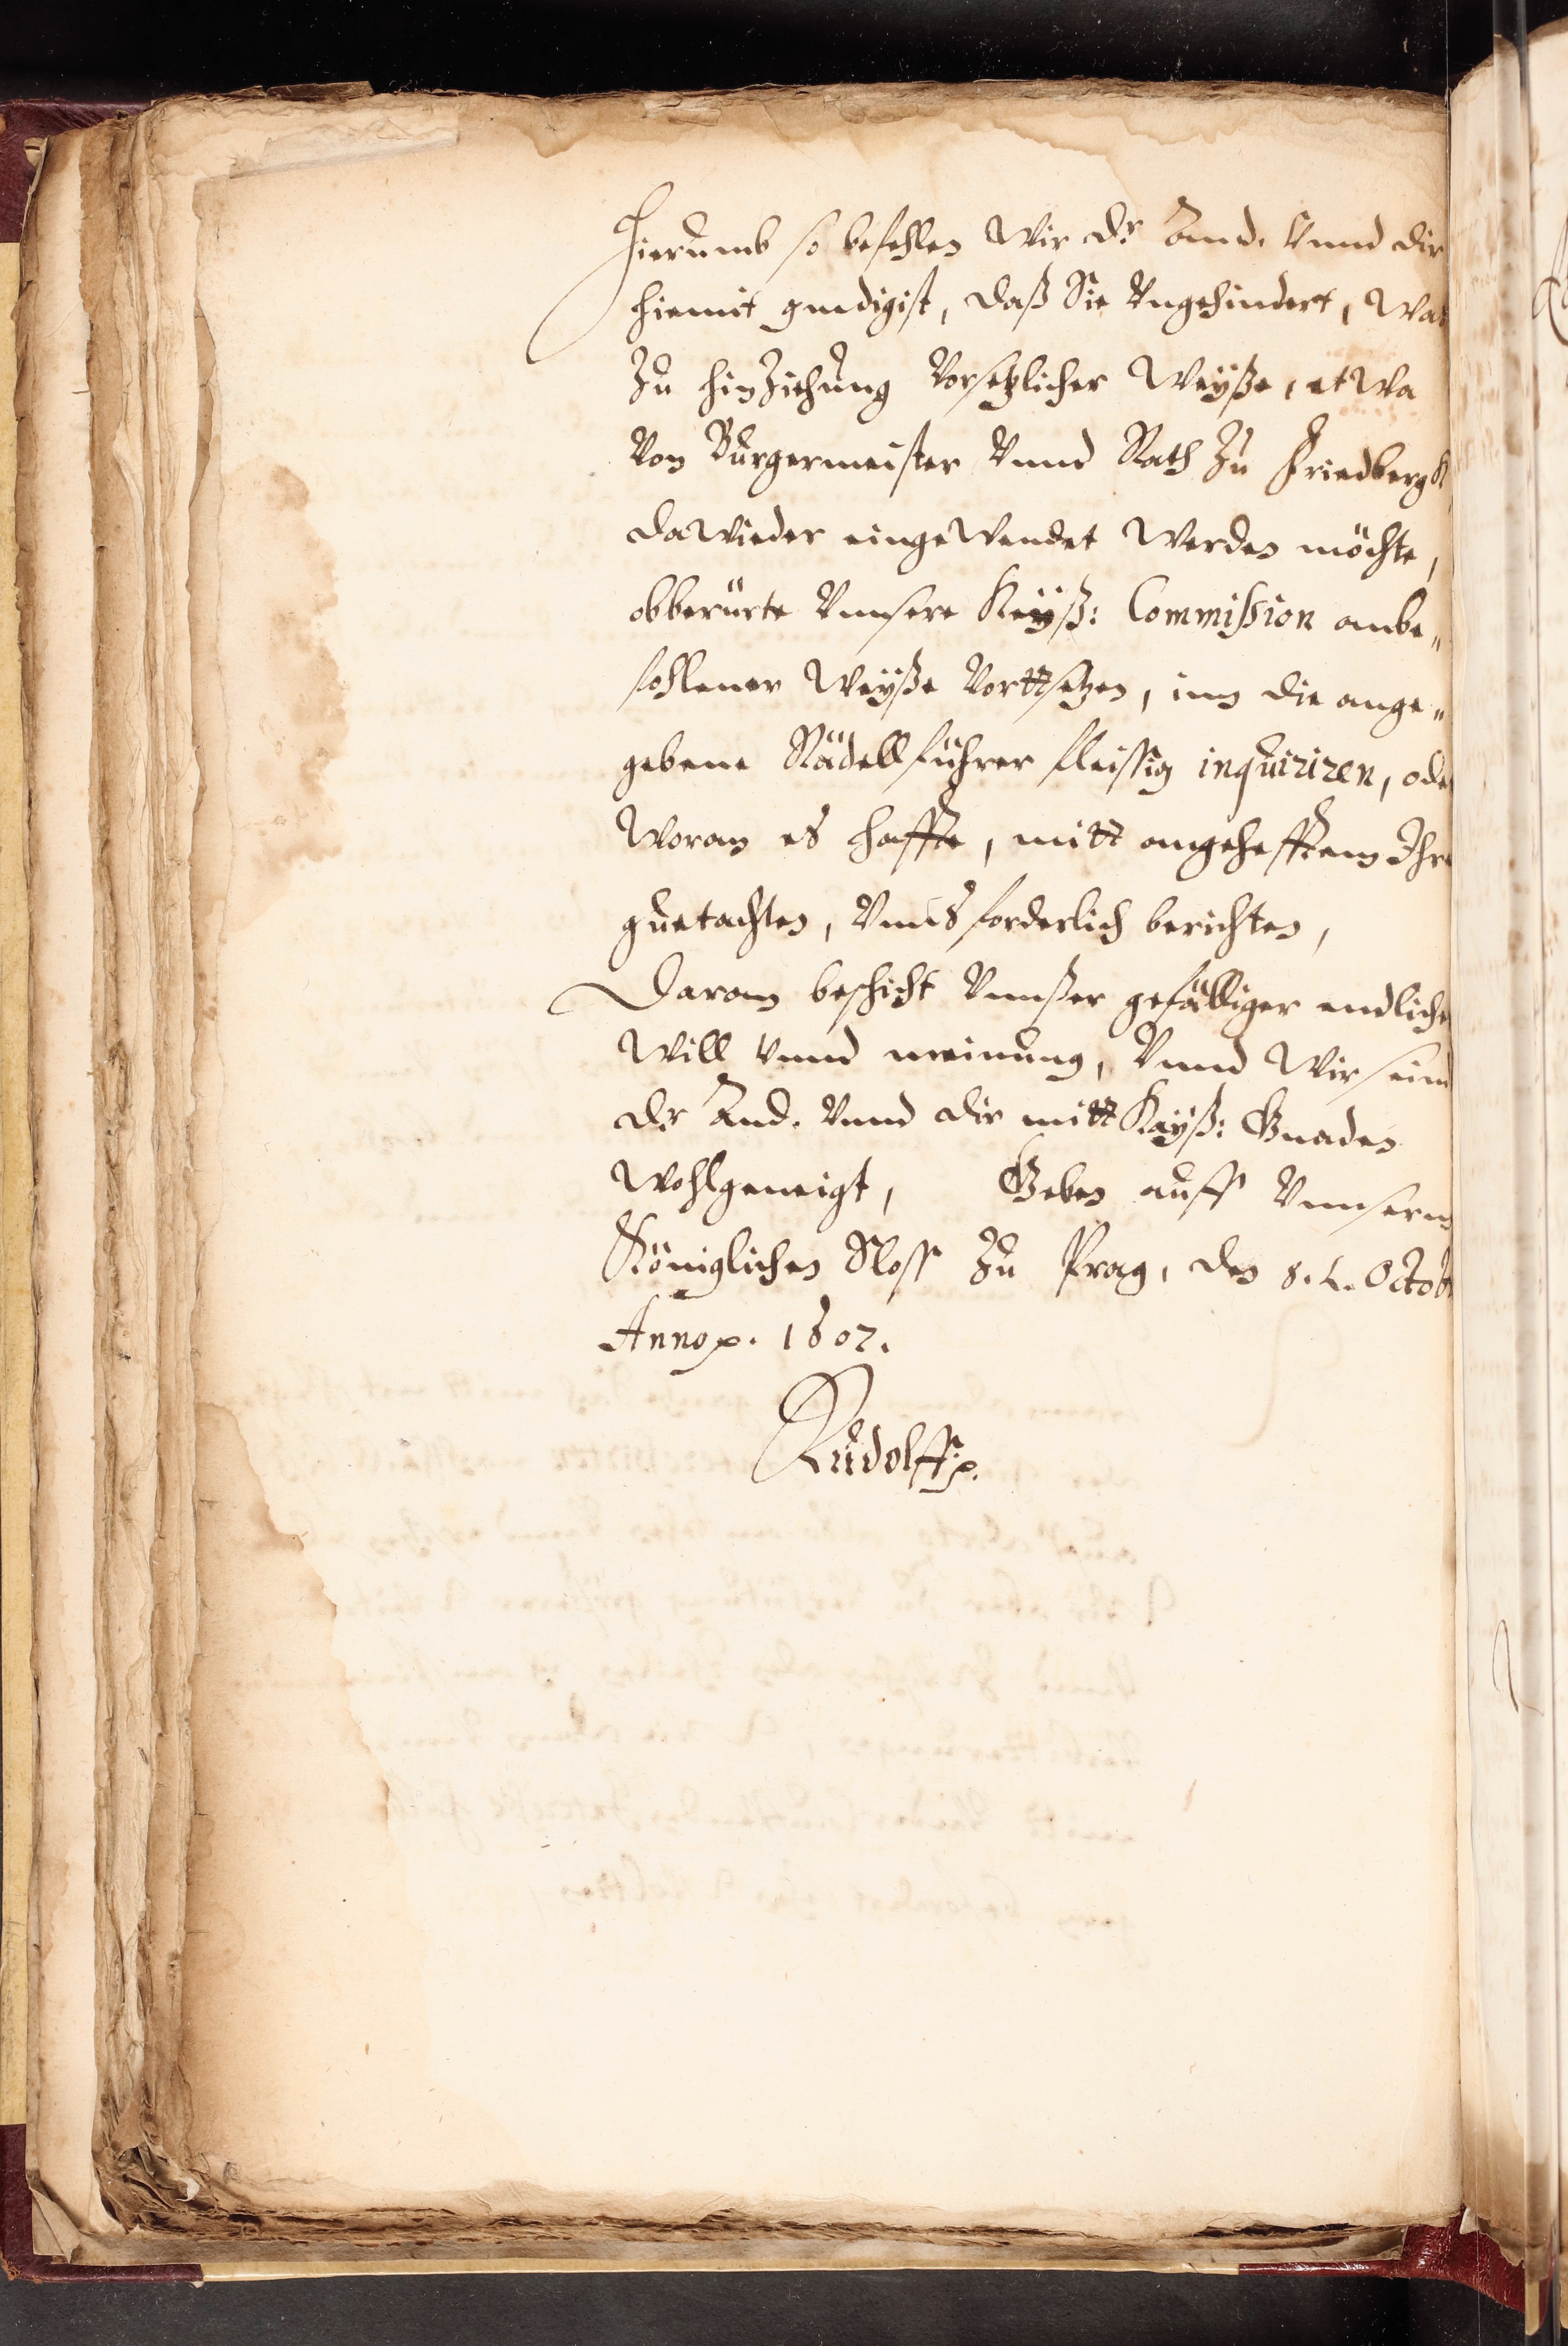 Hierumb so befehlen Wir dr And. Vnnd dir
hiemit gnedigist, daß Sie Vngehindert, Was
Zu hinZiehung Vorsetzlicher Weyße, etwa
Von Burgermeister Vnnd Rath Zu Friedbergk
dawieder eingewendet werden möchte,
obberürte Vnnsere Keyß: Commission anbe„
fohlener Weyße Vorttsetzen, inn die ange„
gebene Rädellführer fleissig inquiriren, oder
Woran es haffte, mitt angehefftem Ihrem
guetachten, Vnns forderlich berichten,
Daran beschicht Vnnßer gefälliger endlicher
Will Vnnd meinung, Vnnd Wir seind
dr And. Vnnd dir mitt Kayß: Gnaden
wohlgeneigt, Geben auff Vnnserm
Königlichen Sloss Zu Prag, den Octob
Anno 1607.
Rudolff